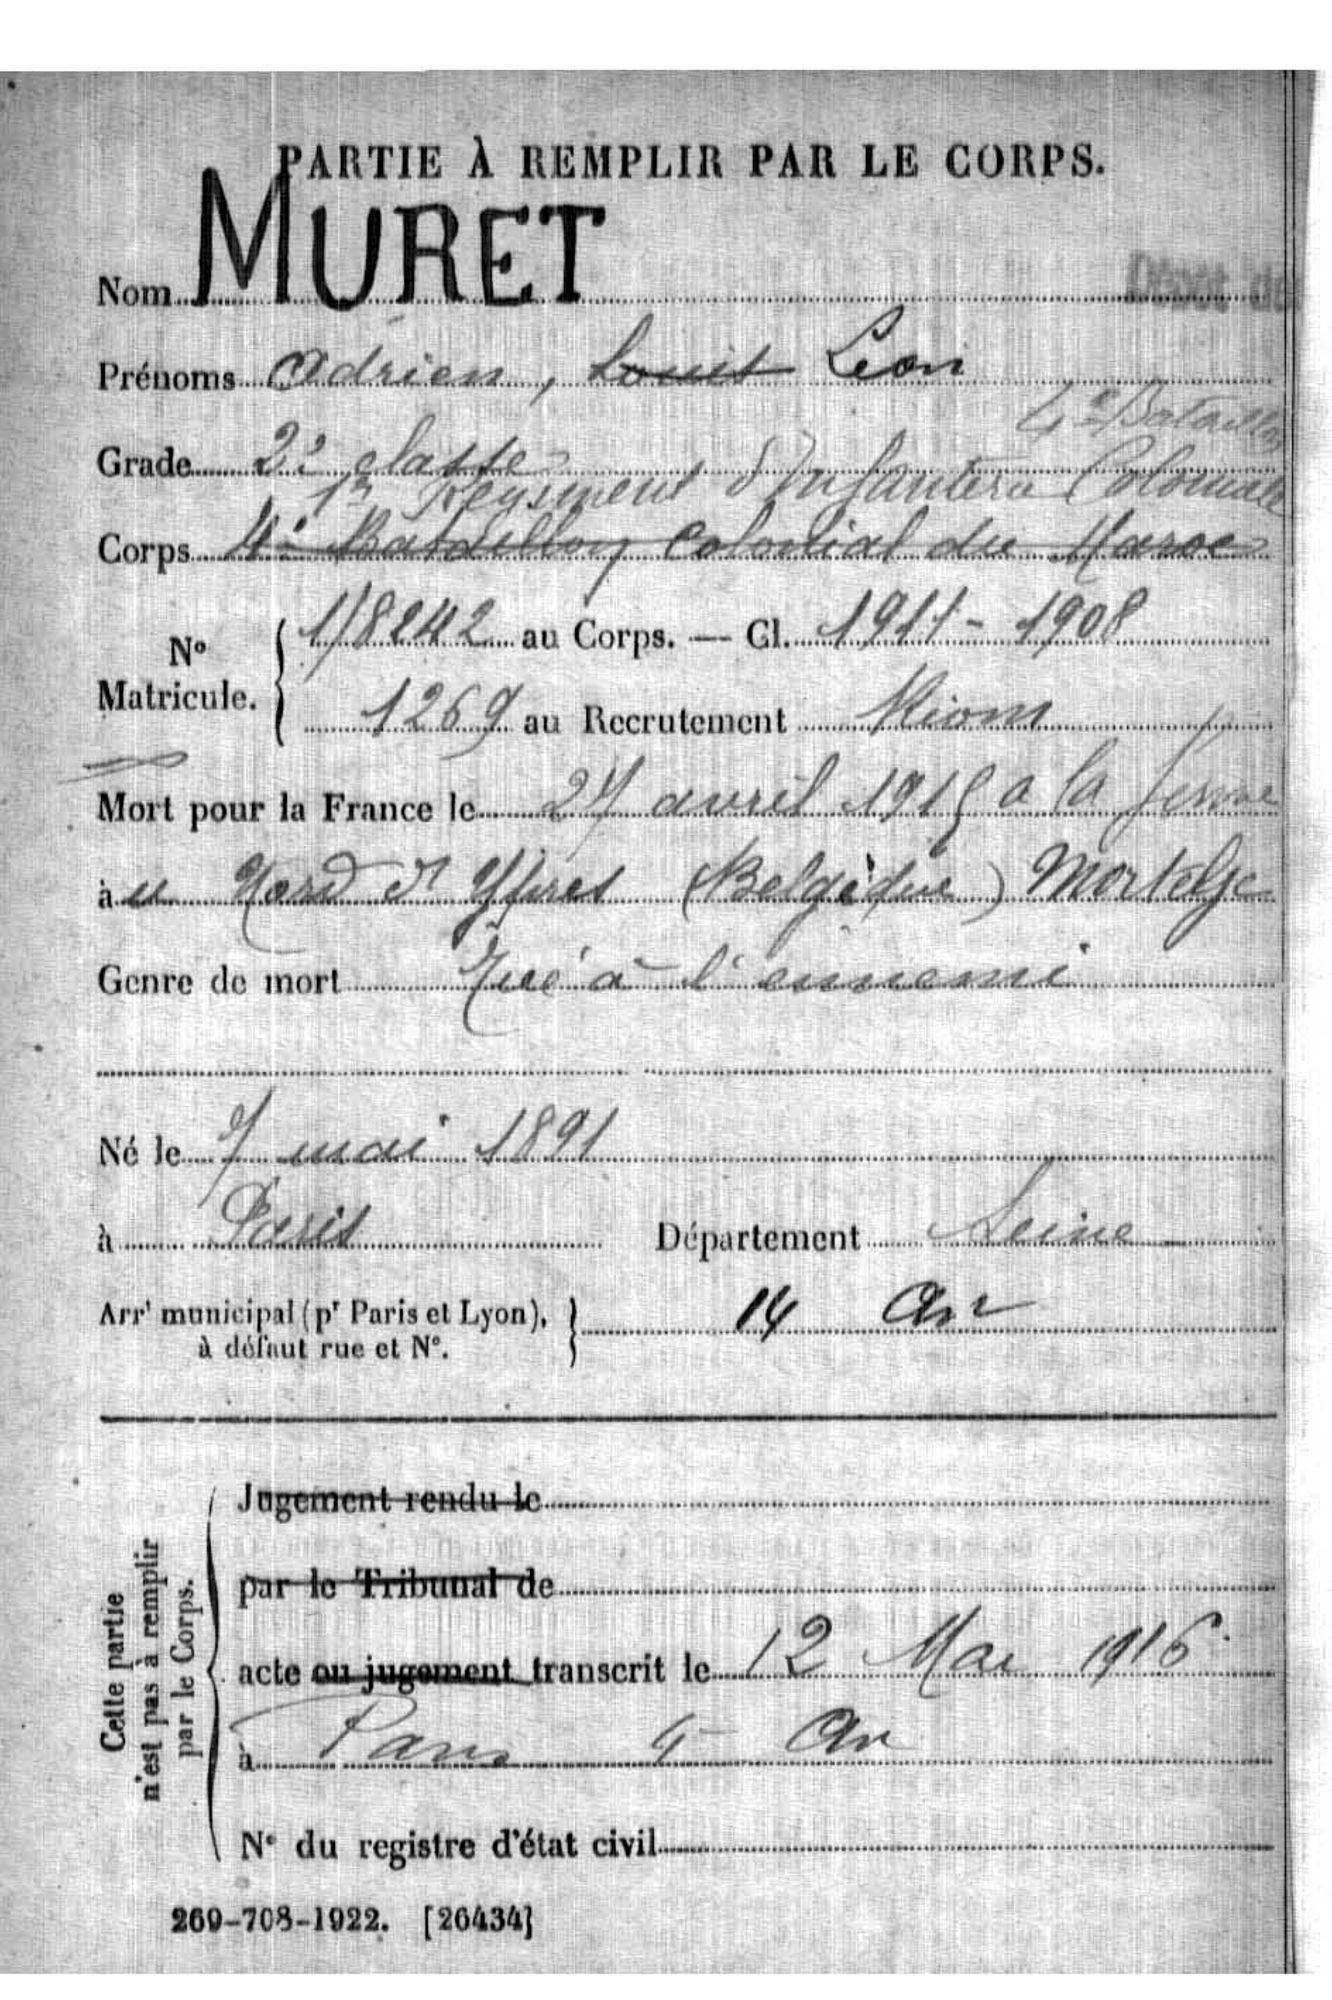 PARTIE À REMPLIR PAR LE CORPS.
Nom MURET
Dépôt de
Prénoms Adrien, Louis Léon
4e Bataillon
Grade 2e classe
1er Regiment d'Infanterie Coloniale
Corps 4e Bataillon Colonial du Maroc
No Matricule. { 1/8242 au Corps. — Cl. 1911 - 1908
1269 au Recrutement Riom
Mort pour la France le 27 avril 1915 a la ferme
à u Nord d' Ypres (Belgique) Mortelje
Genre de mort Tué à l'ennemi
Né le 7 mai 1891
à Paris Département Seine
Arrt municipal (pr Paris et Lyon), } 14 Arr
à défaut rue et No.
Cette partie
n'est pas à remplir
par le Corps.
Jugement rendu le
par le Tribunal de
acte ou jugement transcrit le 12 Mai 1916
à Paris Arr
No du registre d'état civil
269-708-1922. [26434]